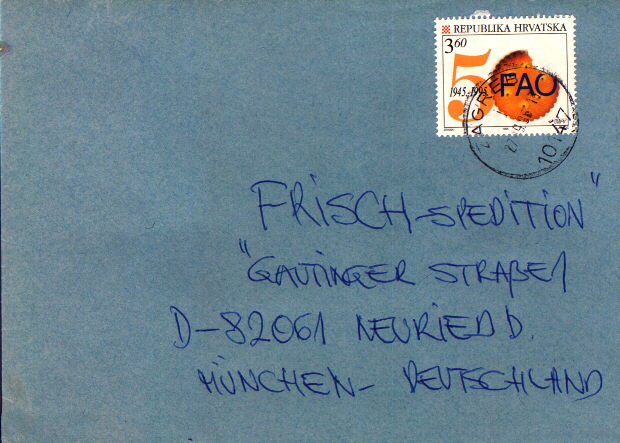 REPUBLIKA HRVATSKA
3,60
50
1945.-1995.
FAO
ZAGREB
10147
FRISCH-SPEDITION"
"GAUTINGER STRAßE 1
D-82061 NEURIED b.
MÜNCHEN- DEUTSCHLAND